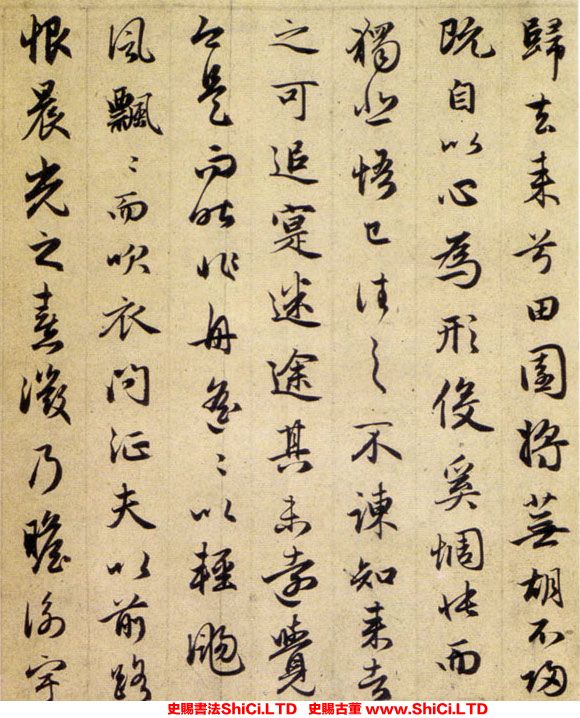 歸去来兮田園將蕪胡不歸
既自以心為形役奚惆悵而
獨悲悟已往之不諫知来者
之可追寔迷途其未遠覺
今是而昨非舟遥〻以輕颺
風飄〻而吹衣問征夫以前路
恨晨光之熹微乃瞻衡宇
史賜書法ShiCi.LTD 史賜古董 www.ShiCi.LTD